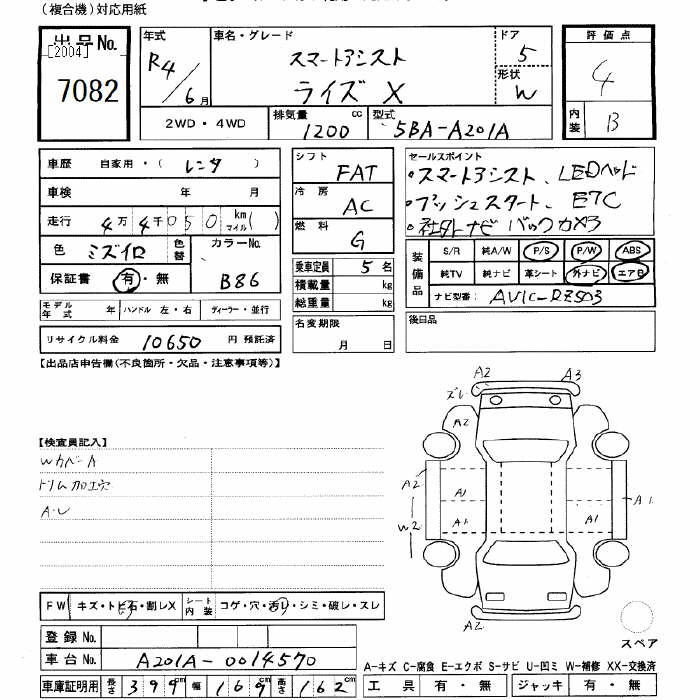 (複合機)対応用紙
出品No.
[2004]
7082
年式
R4/6月
車名・グレード
スマートアシスト
ライズ X
ドア
5
形状
W
評価点
4
内装
B
2WD・4WD
排気量
1200 cc
型式
5BA-A201A
車歴 自家用・( レンタ )
車検 年 月
走行 4万4千050 km マイル( )
色 ミズイロ
色替
カラーNo.
B86
保証書 有・無
モデル年式 年 ハンドル 左・右 ディーラー・並行
リサイクル料金 10650 円 預託済
シフト FAT
冷房 AC
燃料 G
乗車定員 5 名
積載量 kg
総重量 kg
名変期限
月 日
セールスポイント
・スマートアシスト、LEDヘッド
・プッシュスタート、ETC
・社外ナビ バックカメラ
装備品
S/R 純A/W P/S P/W ABS
純TV 純ナビ 革シート 外ナビ エアB
ナビ型番: AVIC-RZ503
後日品
【出品店申告欄(不良箇所・欠品・注意事項等)】
【検査員記入】
WカバーA
ドリム加工穴
A・U
A2
A3
ズレ
A2
A2
A1
W2
A1
A1
A1
A2
スペア
FW キズ・トビ石・割レX
シート内装 コゲ・穴・汚レ・シミ・破レ・スレ
登録No.
車台No. A201A-0014570
車庫証明用 長さ 399cm 幅 169cm 高さ 162cm
A-キズ C-腐食 E-エクボ S-サビ U-凹ミ W-補修 XX-交換済
工具 有・無 ジャッキ 有・無